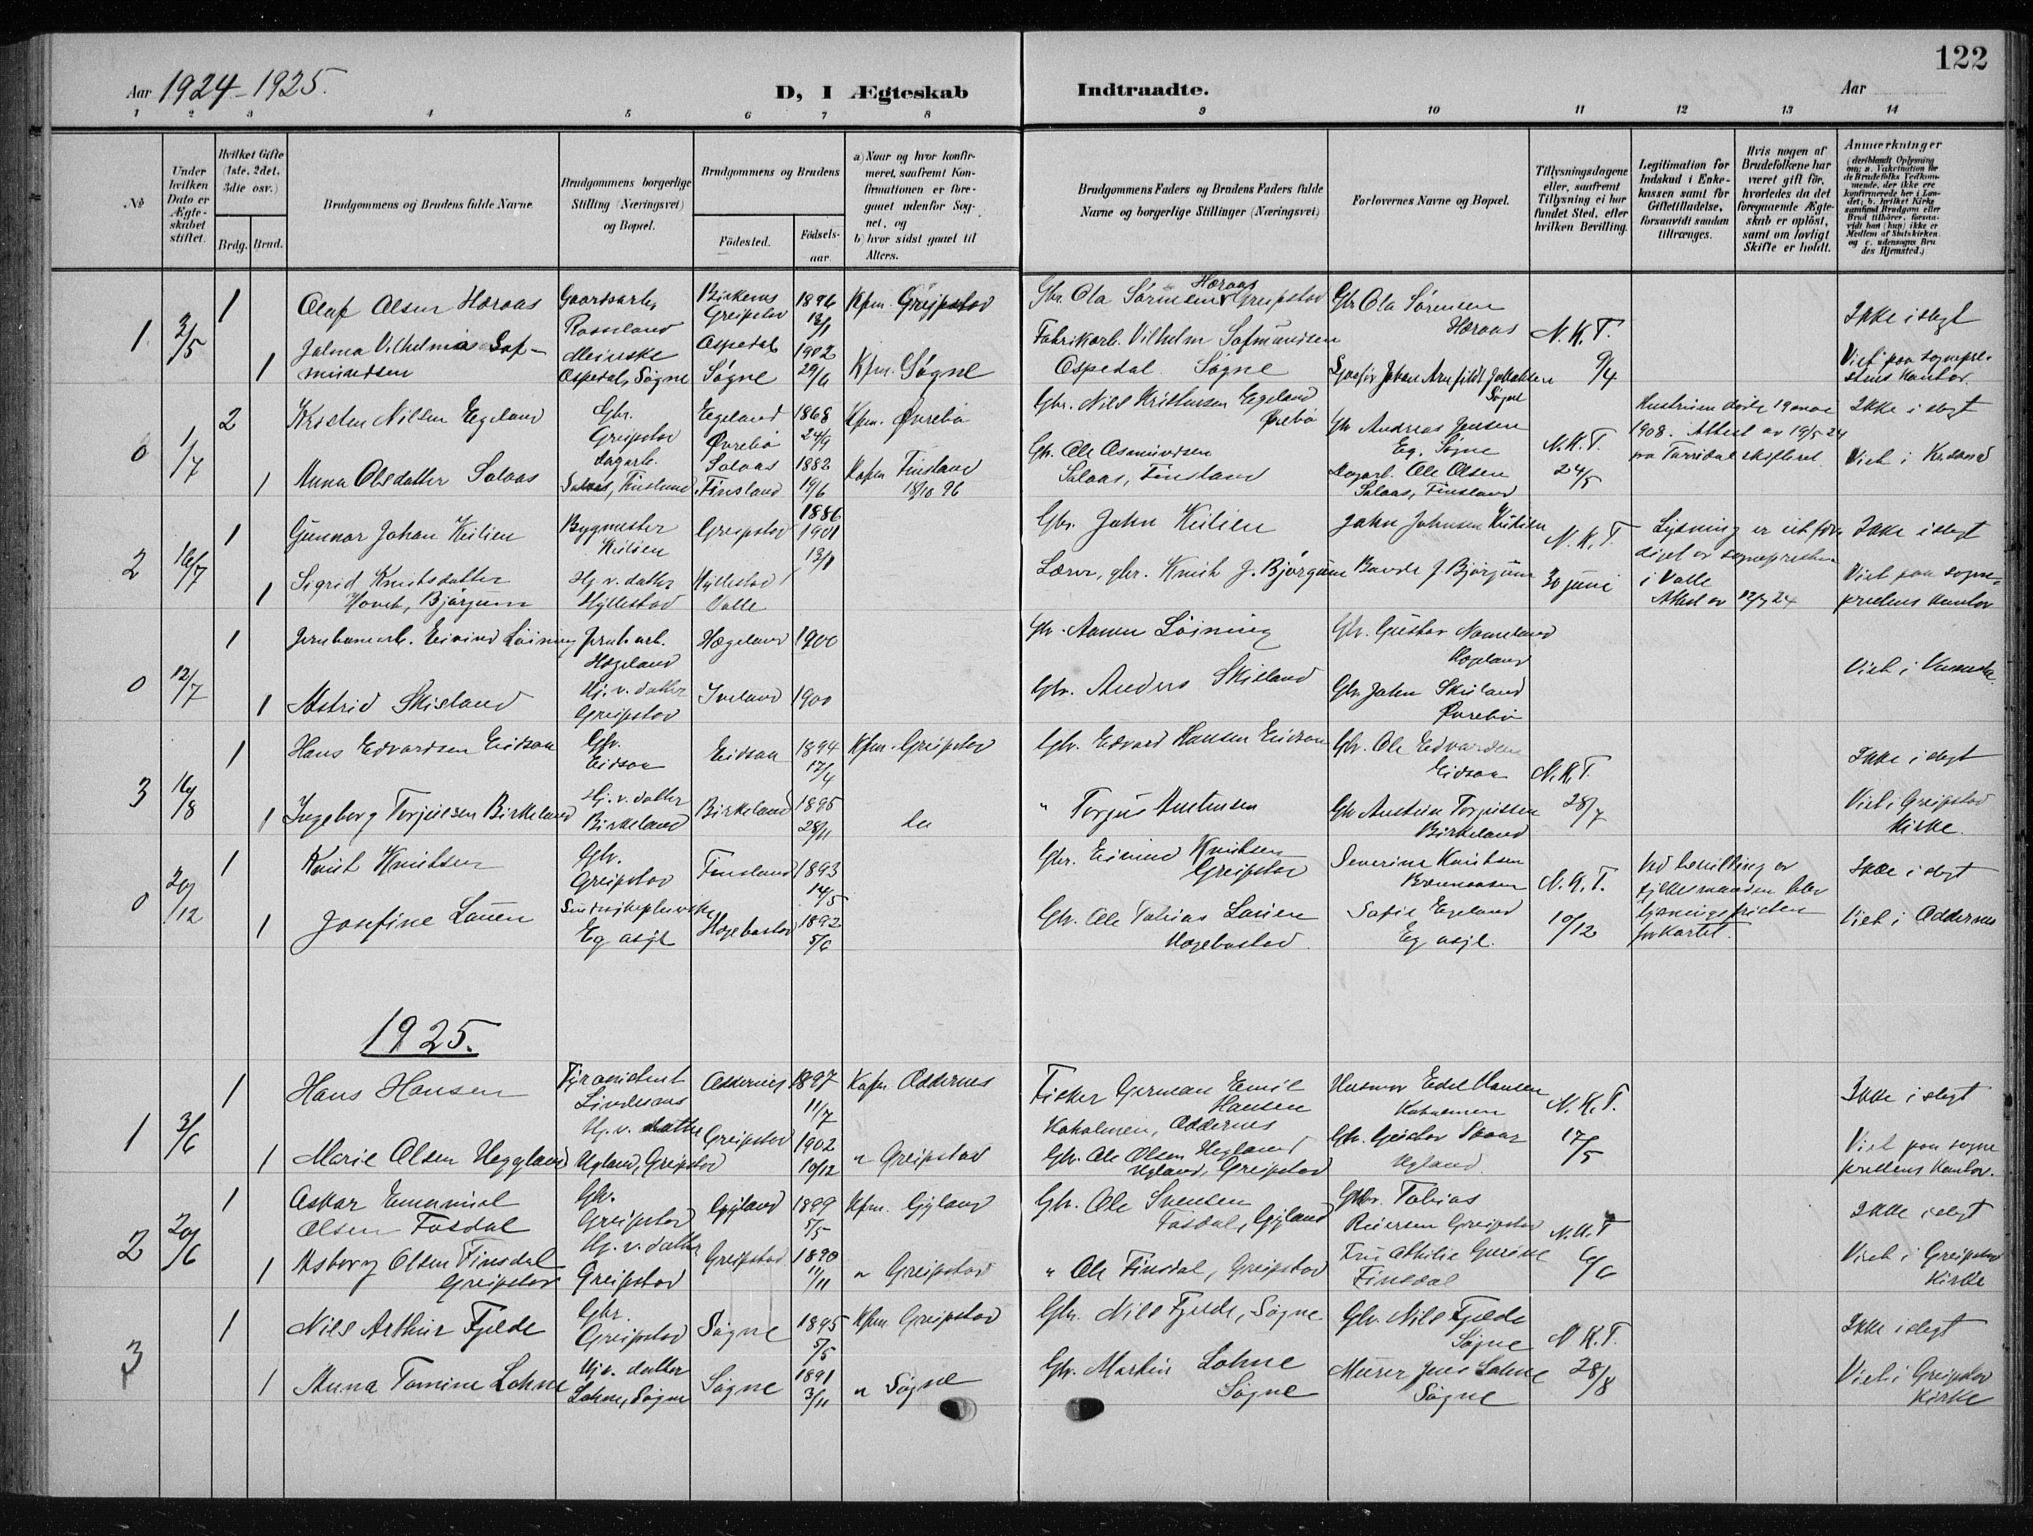 122
Aar 1924-1925.
D, I Ægteskab Indtraadte.
Aar
1 2 3 4 5 6 7 8 9 10 11 12 13 14
No
Under hvilken Dato er Ægteskabet stiftet.
Hvilket Gifte (1ste, 2det, 3die osv.)
Brdg. Brud.
Brudgommens og Brudens fulde Navne.
Brudgommens borgerlige Stilling (Næringsvei) og Bopæl.
Brudgommens og Brudens
Fødested. Fødselsaar
a) Naar og hvor konfirmeret, saafremt Konfirmationen er foregaaet udenfor Sognet, og
b) hvor sidst gaaet til Alters.
Brudgommens Faders og Brudens Faders fulde Navne og borgerlige Stillinger (Næringsvei)
Forlovernes Navne og Bopæl.
Tillysningsdagene eller, saafremt Tillysning ei har fundet Sted, efter hvilken Bevilling.
Legitimation for Indskud i Enkekassen samt for Giftetilladelse, forsaavidt saadan tiltrænges.
Hvis nogen af Brudefolkene har været gift før, hvorledes da det foregaaende Ægteskab er opløst, samt om lovligt Skifte er holdt.
Anmærkninger
1 3/5 1 Olaf Olsen Heraas
Birkenes Greipstad 1896 Kfm. Greipstad
Gbr. Ola Sørensen Heraas Greipstad
Gbr Ola Sørensen Heraas
N.K.T. 9/4
Ikke i slegt
1 Jalma Vilhelmia
Ospedal, Søgne
Ospedal Søgne 1902 29/6 Kfm. Søgne
Fabrikarb. Vilhelm
Ospedal Søgne
Viet paa sogneprestens kontor.
0 1/7 2 Kristen Nilsen Egeland
Gbr. Greipstad
Egeland Øvrebø 1868 24/9 Kfm. Øvrebø
Gbr. Nils Kristensen Egeland Øvrebø
Gbr Andreas Jensen Eg, Søgne
N.K.T. 24/5
Hustruen døde 19 mai 1908. Attest av 19/5 24 fra Torridal skifteret.
Ikke i slegt
1 Anna Olsdatter Salaas
Salaas, Finsland
Salaas Finsland 1882 19/6 Kafm Finsland 96
Gbr. Ole Osmundsen Salaas, Finsland
Dagarb. Ole Olsen Salaas, Finsland
Viet i Kr.sand
2 1 Gunnar Johan Keilien
Bygmester Keilien
Greipstad 1886 1901
Gbr. John Keilien
John Johnsen Keilien
N.K.T. 30 juni
Lysning er utfærdiget av sognepresten i Valle
Attest av 12/7 24
Ikke i slegt
1 Sigrid Knutsdatter Hovet, Bjørgum
Hj. v. datter Hyllestad
Hyllestad Valle
Lærer, gbr. Knut J. Bjørgum
Viet paa sogneprestens kontor
0 12/7 1 Jernbanearb. Eivind Løining
Jernb.arb. Hægeland
Hægeland 1900
Gbr. Aanen Løining
Gbr. Gustav Nomeland Hægeland
1 Astrid Skisland
Hj. v. datter Greipstad
Iveland 1900
Gbr. Anders Skisland
Gbr John Skisland Øvrebø
Viet i
3 16/8 1 Hans Edvardsen Eidsaa
Gbr. Eidsaa
Eidsaa 1894 17/4 Kfm. Greipstad
Gbr. Edvard Hansen Eidsaa
Gbr. Ole Edvardsen Eidsaa
N.K.T. 28/7
Ikke i slegt
1 Ingeborg Torjussen Birkeland
Hj. v. datter Birkeland
Birkeland 1895 28/11 do
" Torjus Austensen
Gbr Austein Torjussen Birkeland
Viet i Greipstad Kirke.
0 20/12 1 Knut Knutsen
Gbr. Greipstad
Finsland 1893 14/5
Gbr. Eivind Knutsen Greipstad
Severine Knutsen
N.K.T. 10/12
Ved bevilling av fylkesmannen blev lysningsfristen forkortet.
Ikke i slegt
1 Josefine Lauen
Eg asyl
Hægebostad 1892 5/6
Gbr. Ole Tobias Lauen Hægebostad.
Sofie Egeland Eg asyl.
Viet i Oddernes
1925.
1 3/6 1 Hans Hansen
Fyrassistent Lindesnes
Oddernes 1897 11/7 Kafm Oddernes
Fisker German Emil Hansen Kaholmen, Oddernes
Husmor Edel Hansen Kaholmen
N.K.T. 17/5
Ikke i slegt
1 Marie Olsen Heggland
Hj. v. datter Ugland, Greipstad
Greipstad 1902 10/12 " Greipstad
Gbr. Ole Olsen Ugland, Greipstad
Viet paa sogneprestens kontor.
2 20/6 1 Oskar Emanuel Olsen Fosdal
Gbr. Greipstad
Gyland 1899 5/5 Kfm. Gyland
Gbr. Ole Svensen Fosdal, Gyland
Gbr. Tobias Reiersen Greipstad
N.K.T 6/6
Ikke i slegt
1 Asborg Olsen Finsdal Greipstad
Hj. v. datter Greipstad
Greipstad 1890 11/11 " Greipstad
" Ole Finsdal, Greipstad
Fru Othilie Gurine Finsdal
Viet i Greipstad Kirke
3 1 Nils Arthur Fjelde
Gbr. Greipstad
Søgne 1895 5/5 Kfm Greipstad
Gbr. Nils Fjelde, Søgne
Gbr. Nils Fjelde Søgne
N.K.T. 28/8
Ikke i slegt
1 Anna Tomine Lohne
Hj.v. datter Lohne, Søgne
Søgne 1891 3/11 " Søgne
Gbr. Martin Lohne Søgne
Murer Jens Lohne Søgne
Viet i Greipstad Kirke